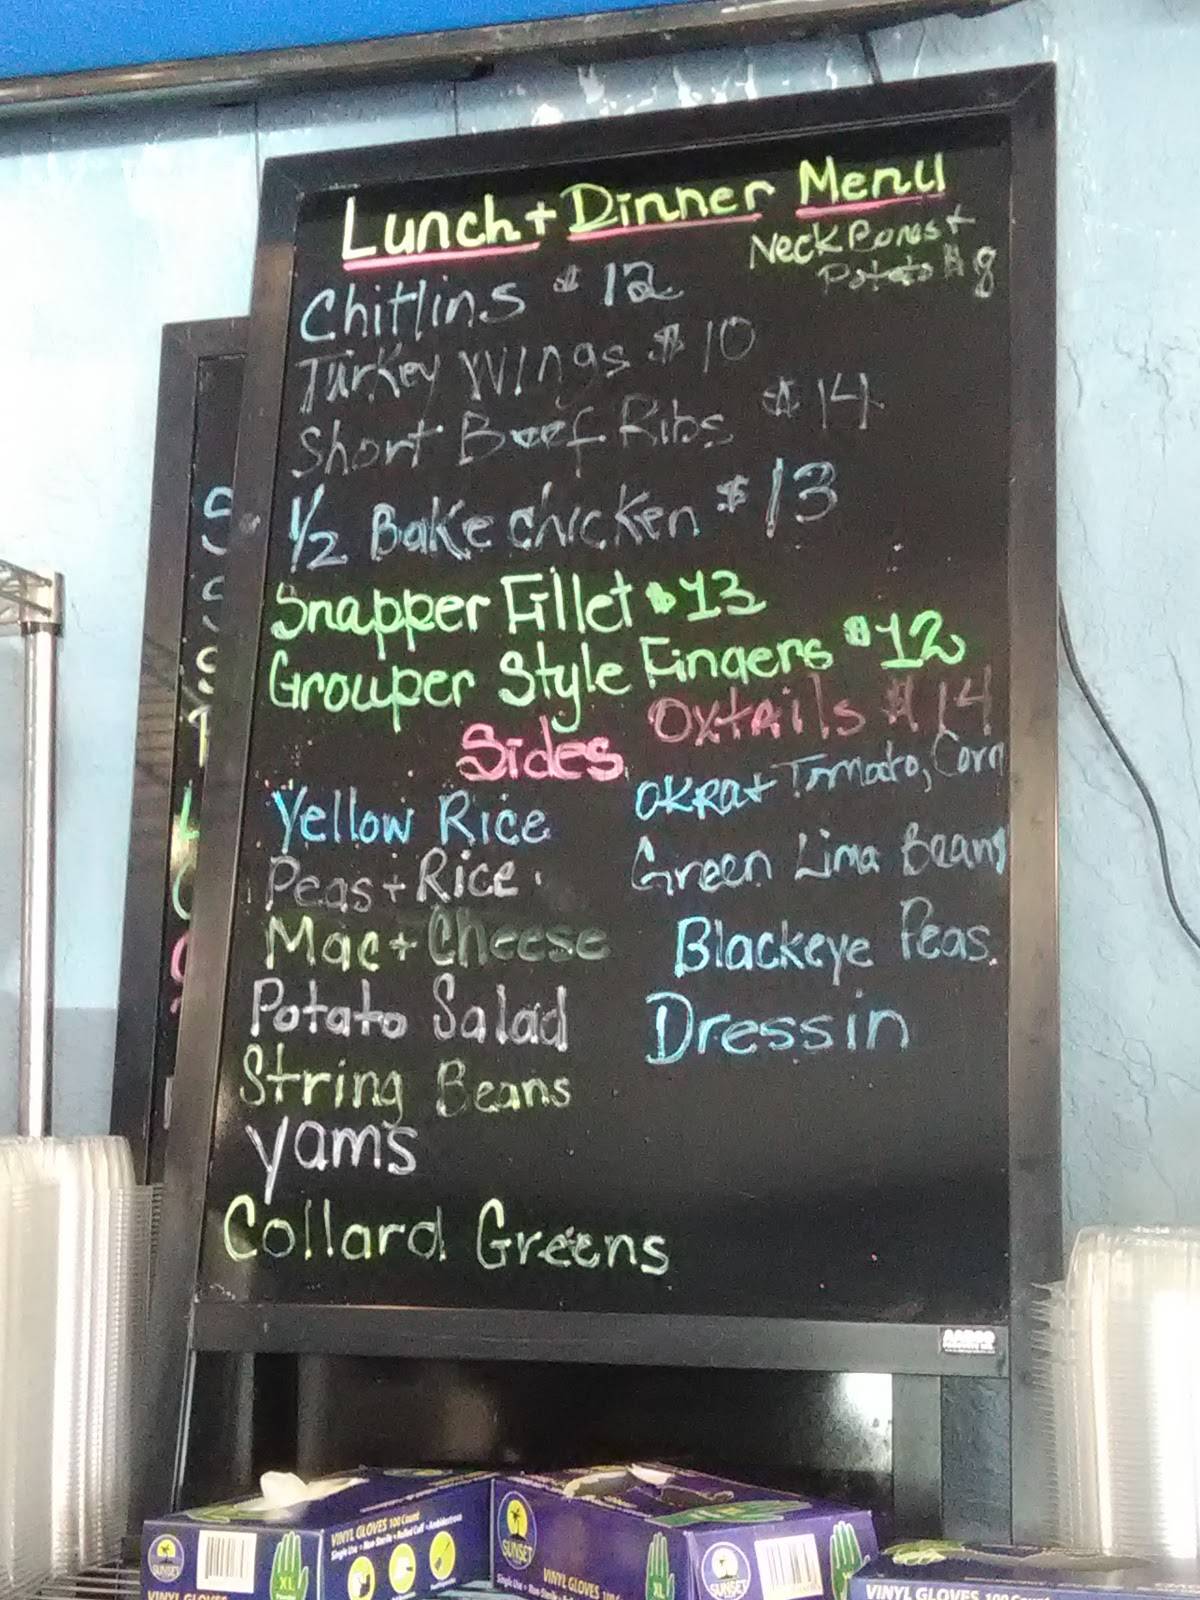 Lunch + Dinner Menu
Neck Bones +
Potato $8
Chitlins $12
Turkey Wings $10
Short Beef Ribs $14
1/2 Bake chicken $13
Snapper Fillet $13
Grouper Style Fingers $12
Oxtails $14
Sides
Yellow Rice
Peas + Rice
Mac + Cheese
Potato Salad
String Beans
Yams
Collard Greens
OKRA + Tomato, Corn
Green Lima Beans
Blackeye Peas
Dressin
SUNSET
XL
VINYL GLOVES
VINYL GLOVES 100 Count
SUNSET
VINYL GLOVES
XL
SUNSET
VINYL GLOVES 100 Count